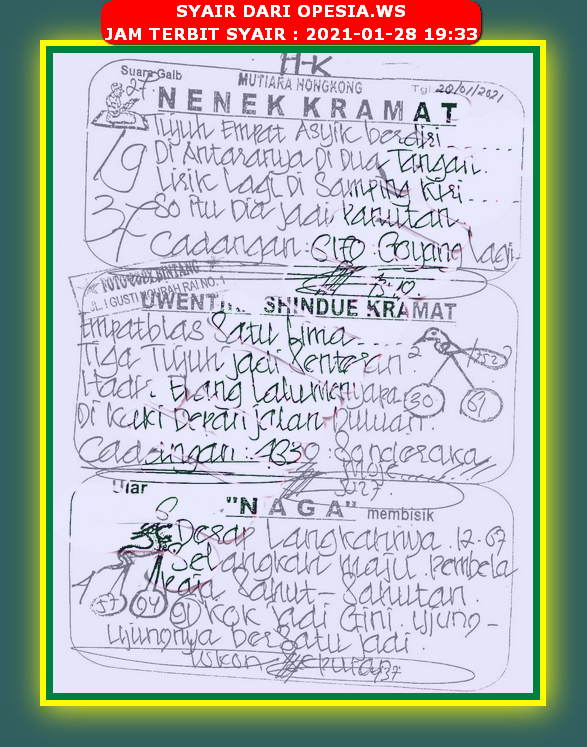 SYAIR DARI OPESIA.WS
JAM TERBIT SYAIR : 2021-01-28 19:33
H-K
Suara Gaib
MUTIARA HONGKONG
Tgl 20/01/2021
27
NENEK KRAMAT
Tujuh Empat Asyik berdiri
Di Antaranya Di Dua Tangan.
Lirik Lagi Di Samping Kiri
So itu Dia jadi Panutan
19
37
Cadangan: Goyang lagi
3.10.
FOTOCOPY BINTANG
JL. I GUSTI NGURAH RAI NO. 1
UWENT... SHINDUE KRAMAT
Empatblas Satu Lima
Tiga Tujuh jadi Renteran
Hadir. Elang Lalu menyapa
Di kaki Depan jalan Duluan
Cadangan: 1830:
2
30
61
3027
Ular
"NAGA" membisik
S
Derap Langkahnya. 12.07
Selangkah maju Pembela
kain Sahut-Sahutan
kok jadi Gini. ujung-
ujungnya bersatu jadi
37
04